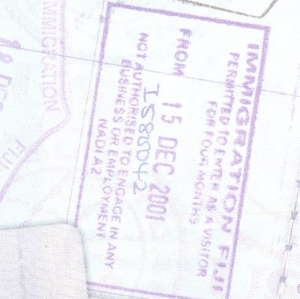 IMMIGRATION FIJI
PERMITTED TO ENTER AS A VISITOR
FOR FOUR MONTHS
FROM 15 DEC 2001
I585042
NOT AUTHORISED TO ENGAGE IN ANY
BUSINESS OR EMPLOYMENT
NADI A2
IMMIGRATION
18 DEC
FIJI